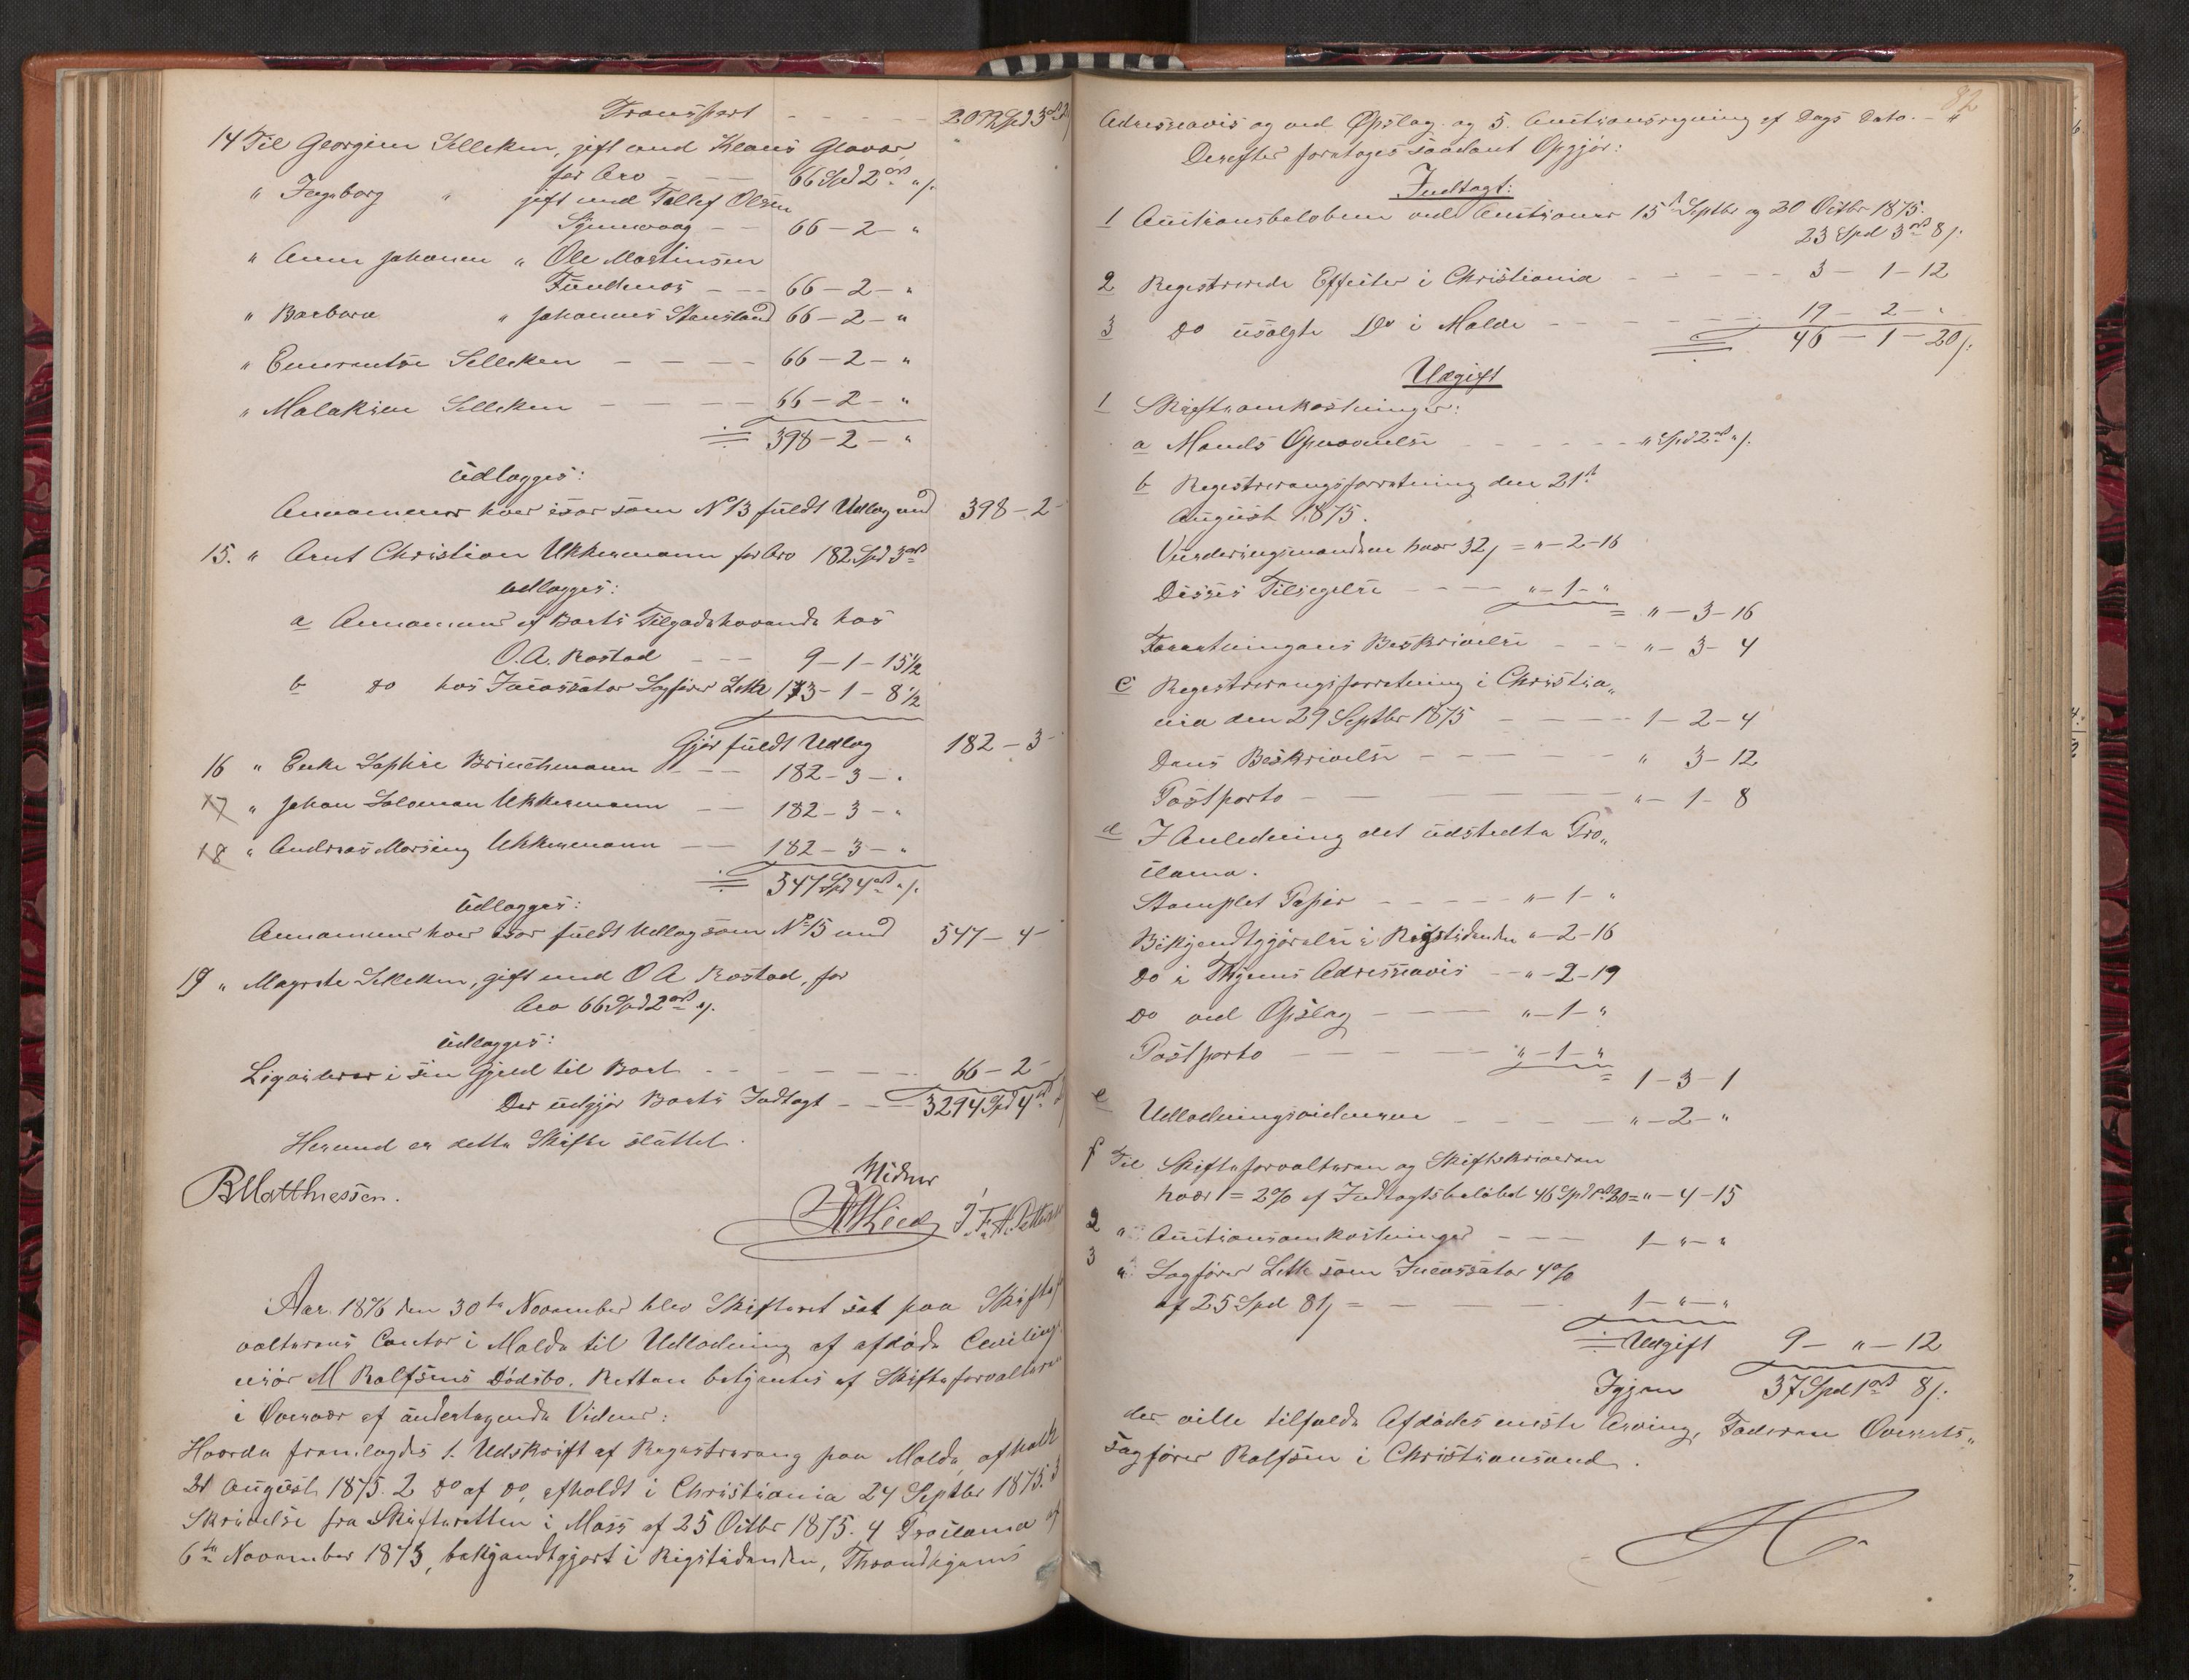 Transport - - - - -
14 Til Georgine Selleken, gift med Klaus Glavar,
for Arv - - 66 Spd 2 ort " s.
" Ingeborg " gift med Tellef Olsen
- - 66 - 2 - "
" Anne Johanne " Ole Martinsen
- - - 66 - 2 - "
" Barbara " Johannes 66 - 2 - "
" Emerentse Selleken - - - - 66 - 2 - "
" Malakine Selleken - - - - 66 - 2 - "
398 - 2 - "
Udlægges:
Annammer hver især som No 13 fuldt Udlæg med 398 - 2 -
15. " Arnt Christian Ukkermann for Arv 182 Spd 3 ort
udlægges:
a Annammer af Boets Tilgodehavende hos
O. A. Rostad - - - 9 - 1 - 15 1/2
b do hos Incassator Sagfører Leth 173 - 1 - 8 1/2
Gjør fuldt Udlæg 182 - 3 -
16 " Enke Sophie Brinchmann - - - 182 - 3 - "
17 " Johan Soloman Ukkermann - - 182 - 3 - "
18 " Andreas Morsing Ukkermann - - 182 - 3 - "
547 Spd 4 ort " s.
Udlægges:
Annammer hver især fuldt Udlæg som No 15 med 547 - 4 -
19 " Magrete Selleken, gift med O A Rostad, for
Arv 66 Spd 2 ort " s.
Udlægges:
Liqviderer i sin Gjeld til Boet - - - - - - 66 - 2 -
Der udgjør Boets Indtægt - - - 3294 Spd 4 ort
Hermed er dette Skifte sluttet.
Vidner
B Matthiessen.
Aar 1876 den 30te November blev Skifteret sat paa Skiftefor
valterens Contor i Molde til Udlodning af afdøde Civilinge
niør M Rolfsens Dødsbo. Retten betjentes af Skifteforvalteren
i Overvær af undertegnede Vidner:
Hvorda fremlagdes 1. Udskrift af Registrering paa Molde, afholdt
21 August 1875. 2 do af do, afholdt i Christiania 24 Septbr 1875. 3
Skrivelse fra Skifteretten i Moss af 25 Octbr 1875. 4 Proclama af
6te November 1875, bekjendtgjort i Rigstidenden, Throndhjems
82
Adresseavis og ved Opslag og 5. Auctionsregning af Dags Dato. - "
Derefter foretoges saadant Opgjør:
Indtægt:
1 Auctionsbeløbene ved Auctioner 15de Septbr og 20 Octbr 1875.
23 Spd 3 ort 8 s.
2 Registrerede Effecter i Christiania - - - - - 3 - 1 - 12
3 do usolgte Do i Molde - - - - - 19 - 2 - "
46 - 1 - 20 s.
Udgift
1 Skifteomkostninger:
a Mands Opnævnelse - - - - - " Spd 2 ort " s.
b Registreringsforretning den 21de
August 1875.
Vurderingsmændene hver 32 s = " - 2 - 16
Disses Tilsigelse - - - - " - 1 - "
= " - 3 - 16
Forretningens Beskrivelse - - - " - 3 - 4
c Registreringsforretning i Christia„
nia den 29 Septbr 1875 - - - - - 1 - 2 - 4
Dens Beskrivelse - - - - - - " 3 - 12
Postporto - - - - - - - " - 1 - 8
d I Anledning det udstedte Pro„
clama.
Stemplet Papir - - - - - " - 1 - "
Bekjendtgjørelse i Rigstidenden " - 2 - 16
do i Thjems Adresseavis - - " - 2 - 19
do ved Opslag - - - - " - 1 - "
Postporto - - - - - " - 1 - "
= 1 - 3 - 1
e Udlodningsvidnerne - - - - - " - 2 - "
f Til Skifteforvalteren og Skifteskriveren
hver 1 = 2% af Indtægtsbeløbet 46 Spd 1 ort 20 = " - 4 - 15
2 " Auctionsomkostninger - - - 1 - " - "
3 " Sagfører Leth som Incassator 4%
af 25 Spd 81 s = - - - - 1 - " - "
Udgift 9 - " - 12
Igjen 37 Spd 1 ort 8 s.
der ville tilfalde Afdødes eneste Arving, Faderen Overrets„
sagfører Rolfsen i Christiansand.